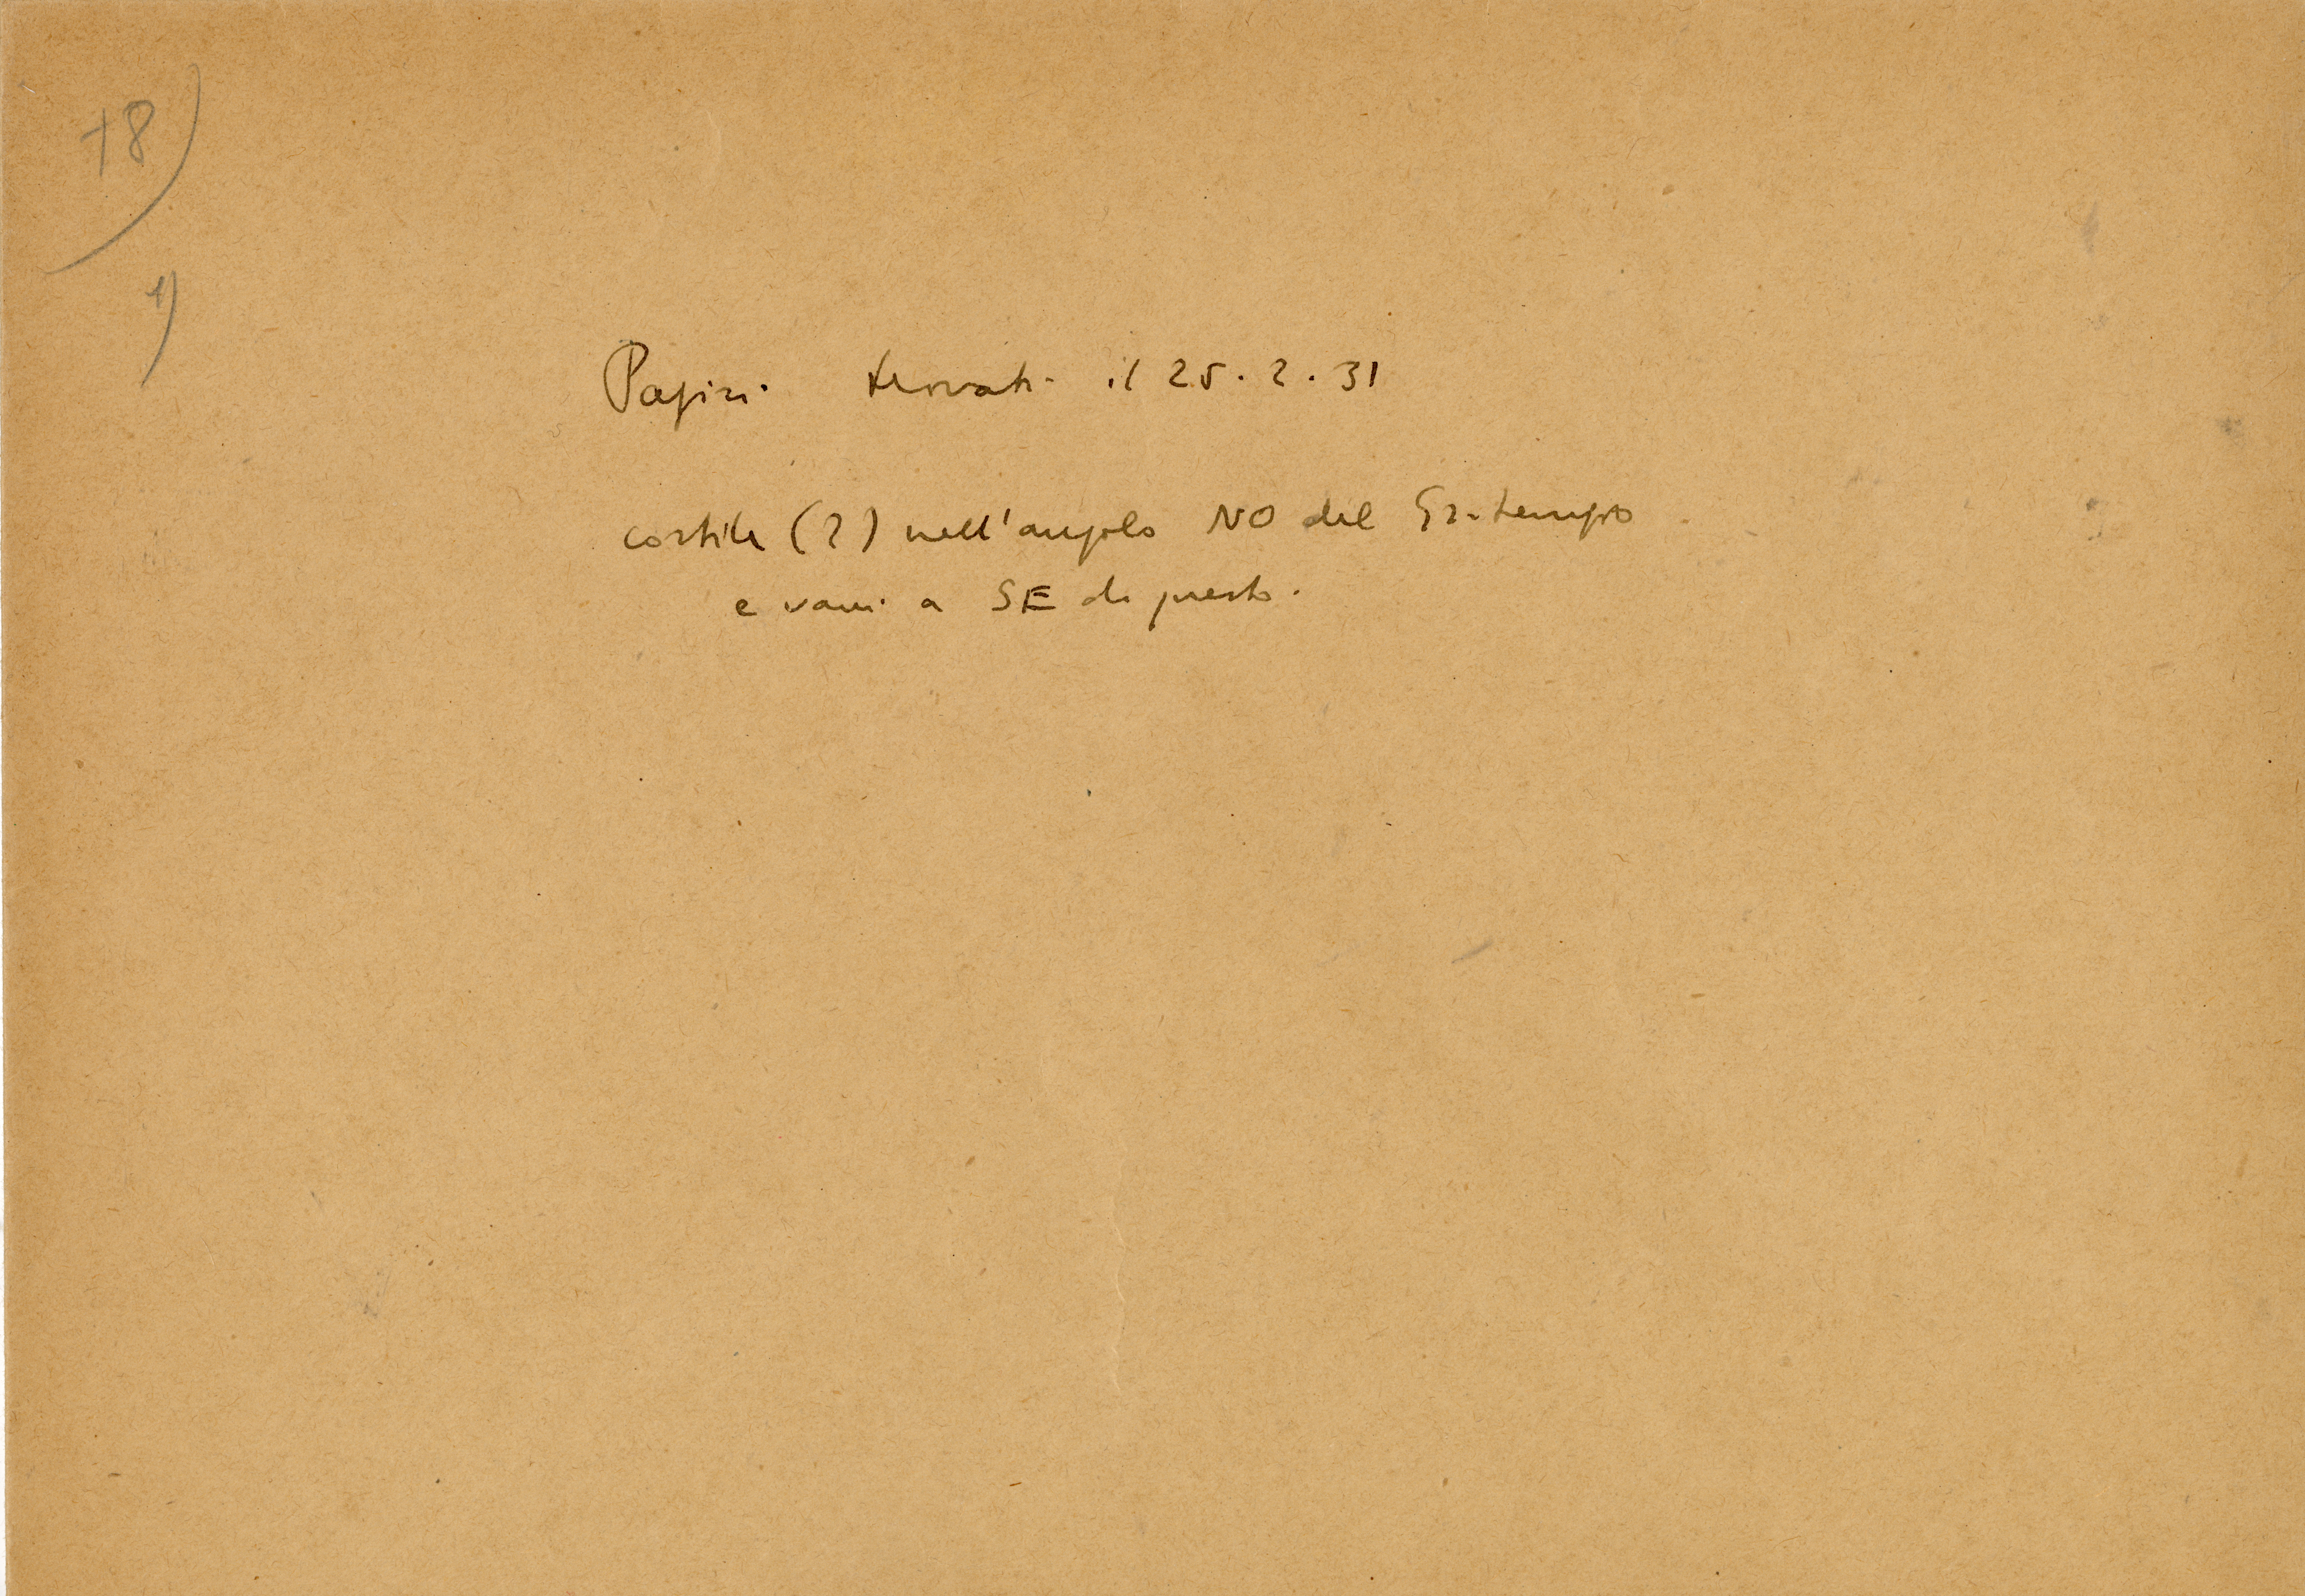 78)
1)
Papiri trovati il 25.2.31
cortile (?) nell'angolo NO del Gr. tempio
e vani a SE di questo.